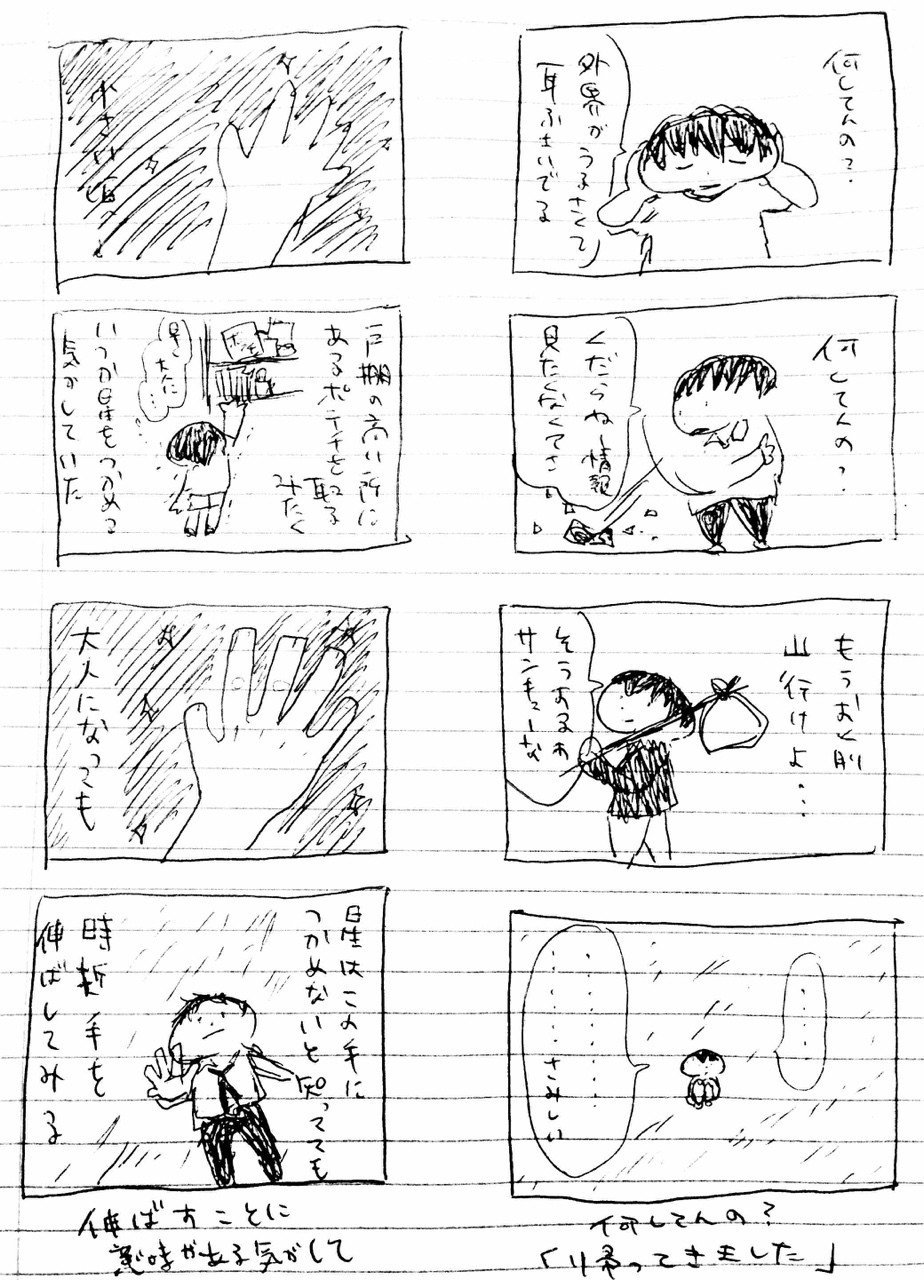 何してんの?
外界がうるさくて
耳ふさいでる
何してんの?
くだらね情報
見たくなくてさ
もうお前
山行けよ・・・
そうするわ
サンキューな
・・・・
・・・・・・・・
・・・・・さみしい
何してんの?
「帰ってきました」
小さい頃
戸棚の高い所に
あるポテチを取る
みたく
早く大人に
・・・
ポテチ
いつか星をつかめる
気がしていた
大人になっても
星はこの手に
つかめないと知ってても
時折手を
伸ばしてみる
伸ばすことに
意味がある気がして